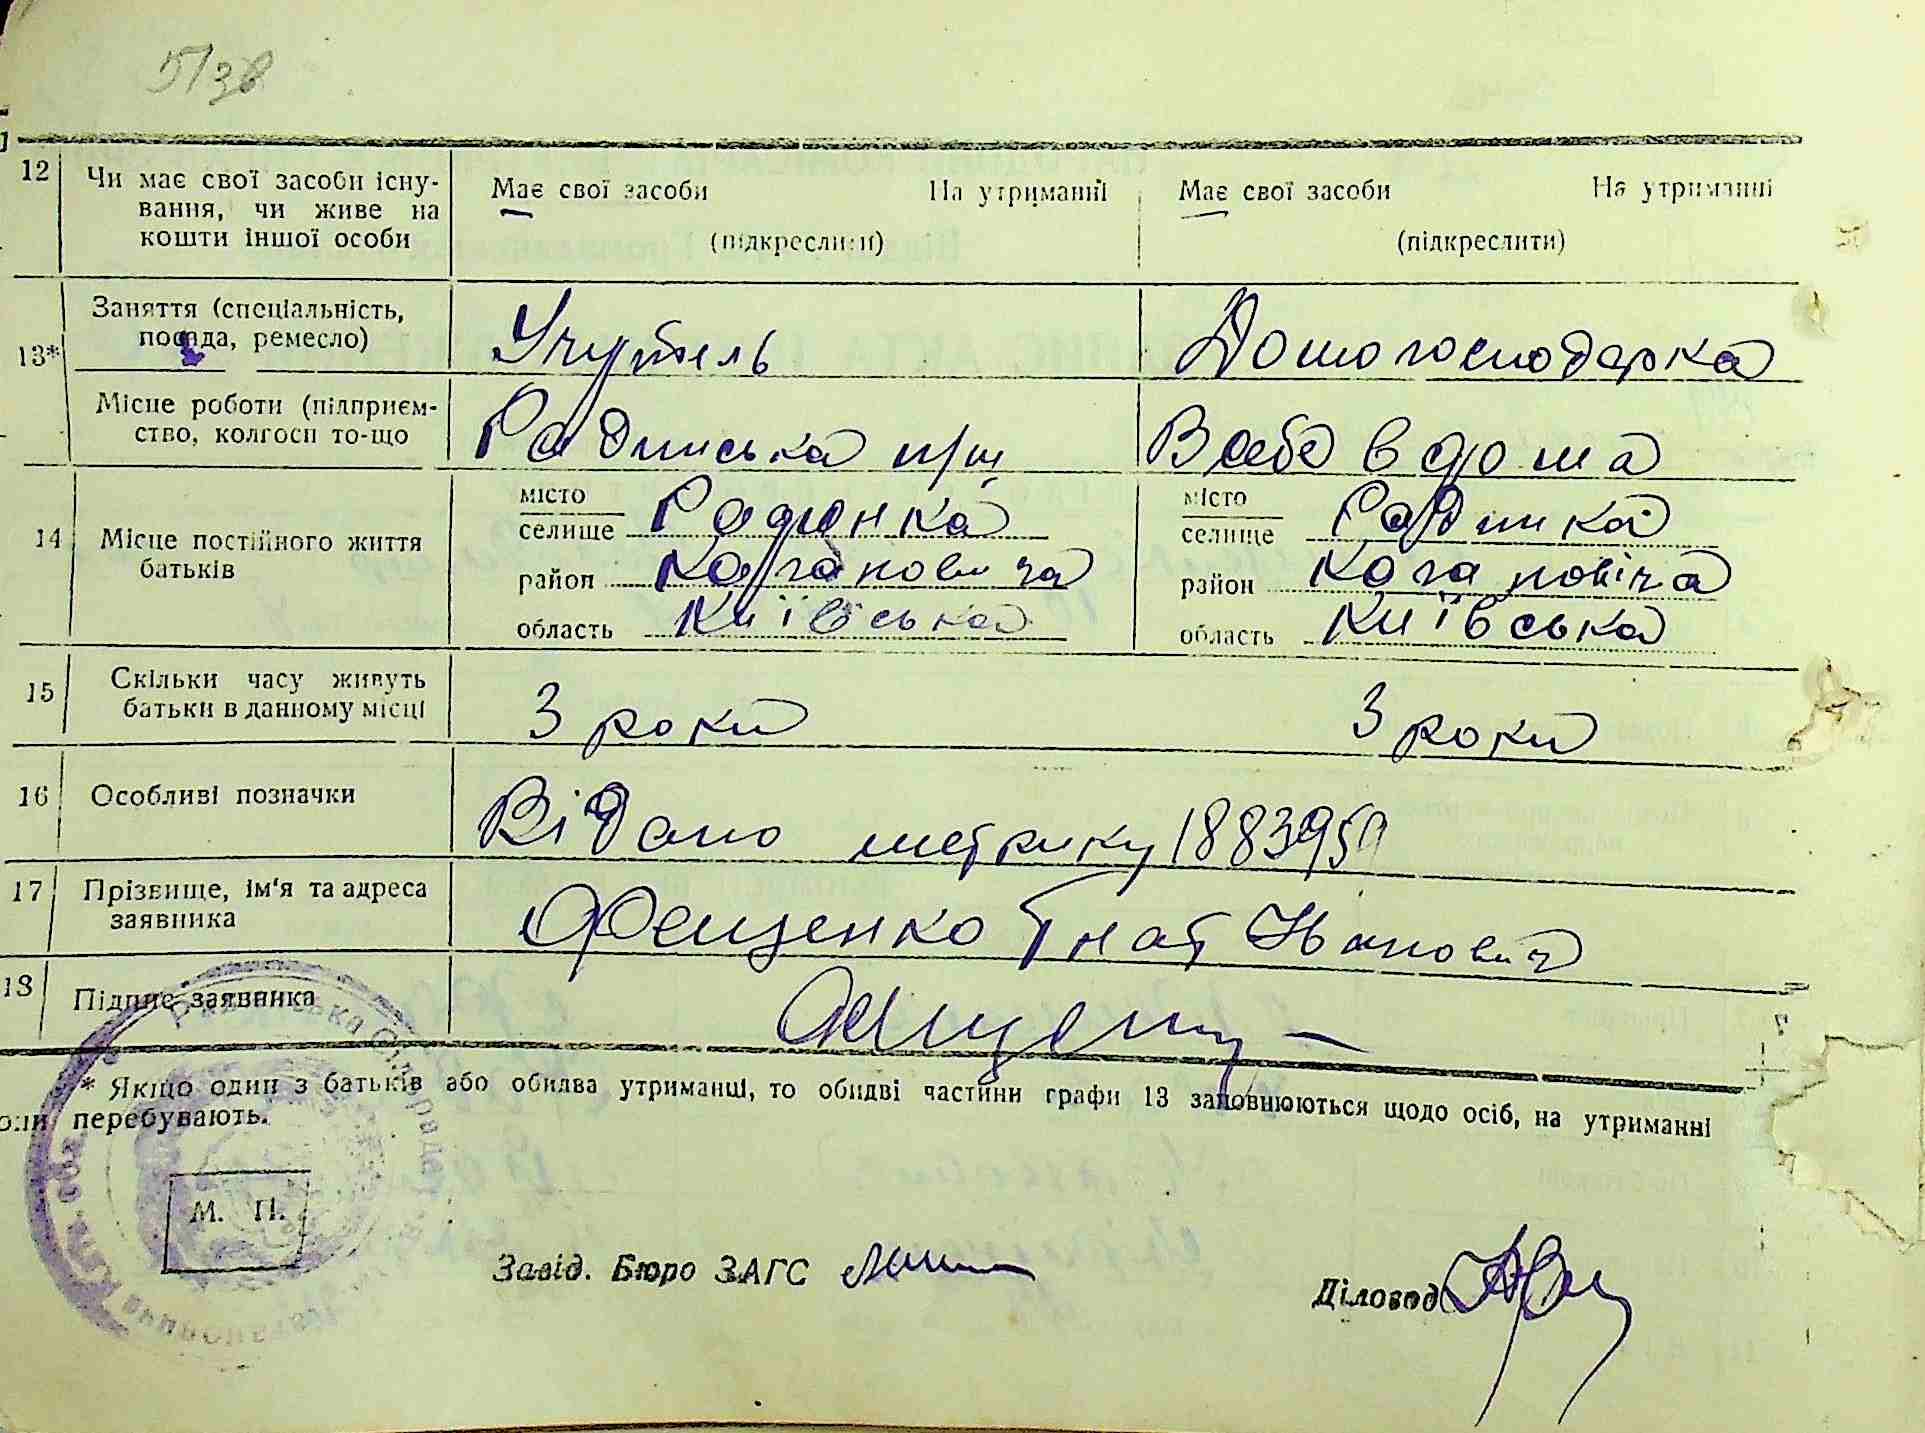 5/38
12 Чи має свої засоби існу- Має свої засоби На утриманні Має свої засоби На утриманні
вання, чи живе на
кошти іншої особи (підкреслити) (підкреслити)
Заняття (спеціальність,
посада, ремесло) Учитель Домогосподарка
13*
Місце роботи (підприєм-
ство, колгосп то-що Радинська п/ш В себе вдома
місто місто
селище Радинка селище Радинка
14 Місце постійного життя
батьків район Кагановича район Кагановіча
область Київська область Київська
15 Скільки часу живуть
батьки в данному місці 3 роки 3 роки
16 Особливі позначки Відано метрику 1883959
17 Прізвище, ім'я та адреса
заявника Фещенко Гнат Іванович
18 Підпис заявника
* Якщо один з батьків або обидва утриманці, то обидві частини графи 13 заповнюються щодо осіб, на утриманні
перебувають.
М. П.
Завід. Бюро ЗАГС
Діловод